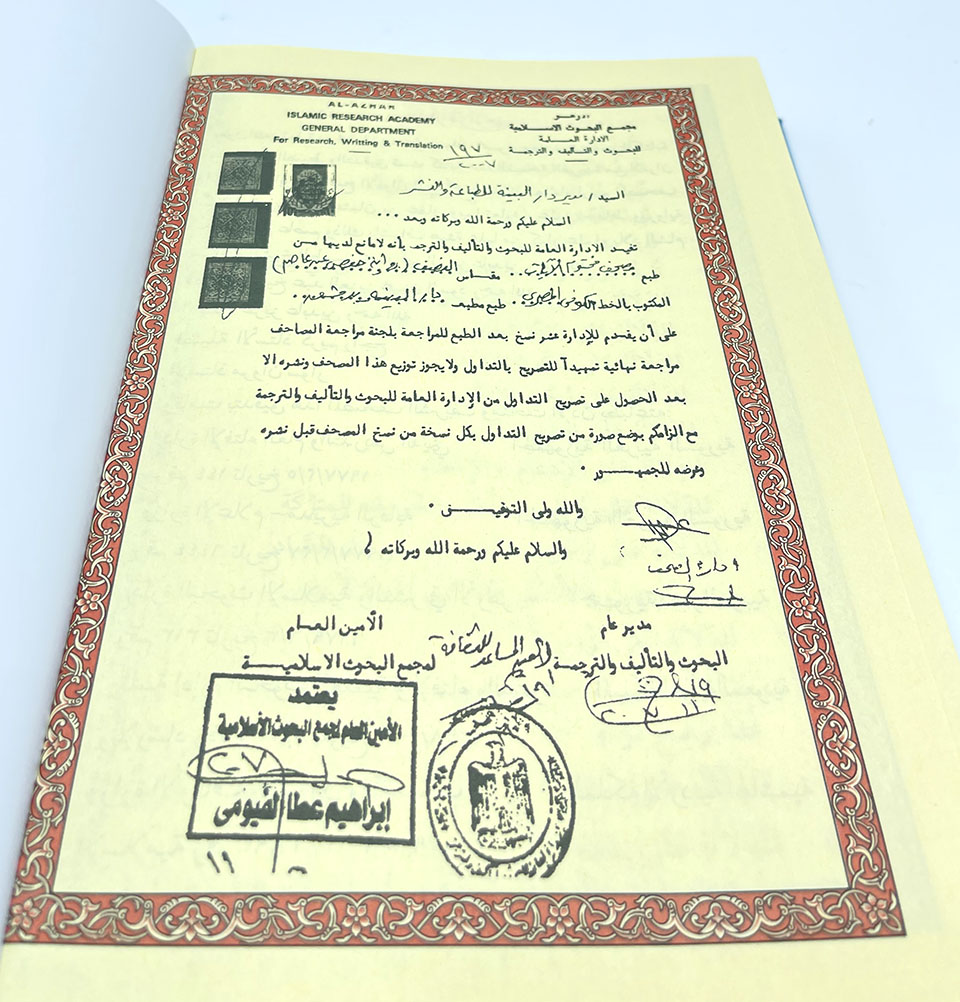 AL-AZHAR
ISLAMIC RESEARCH ACADEMY
GENERAL DEPARTMENT
For Research, Writting & Translation
الأزهر
مجمع البحوث الاسلامية
الادارة العامة
للبحوث والتأليف والترجمة
١٩٧
٢٠٠٧
السيد / مدير دار البينة للطباعة والنشر
السلام عليكم ورحمة الله وبركاته وبعد ...
تفيد الإدارة العامة للبحوث والتأليف والترجمة بأنه لامانع لديها من
طبع مصحف مقاس النصف (رواية حفص عن عاصم)
المكتوب بالخط الكوفي المصري . طبع مطبعة دار البينة بدمشق .
على أن يقدم للإدارة عشر نسخ بعد الطبع للمراجعة بلجنة مراجعة المصاحف
مراجعة نهائية تمهيداً للتصريح بالتداول ولايجوز توزيع هذا المصحف ونشره الا
بعد الحصول على تصريح التداول من الإدارة العامة للبحوث والتأليف والترجمة
مع الزامكم بوضع صورة من تصريح التداول بكل نسخة من نسخ المصحف قبل نشره
وعرضه للجمهور .
والله ولى التوفيق .
والسلام عليكم ورحمة الله وبركاته ؛
مدير عام
البحوث والتأليف والترجمة
الأمين العام
لمجمع البحوث الاسلامية
الأمين المساعد للثقافة
يعتمد
الأمين العام لمجمع البحوث الأسلامية
٢٠٠٧
إبراهيم عطا الفيومى